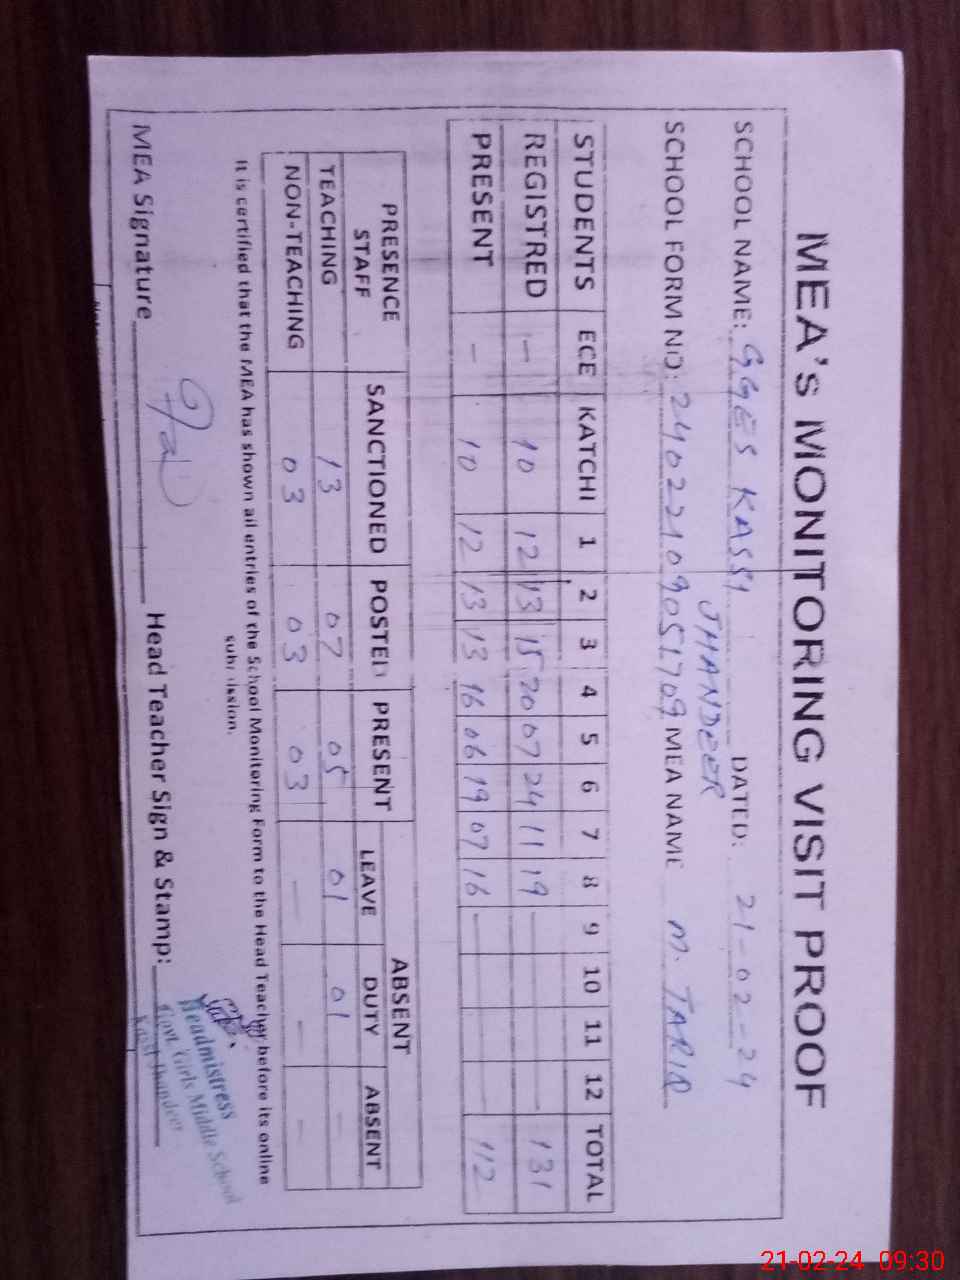 MEA's MONITORING VISIT PROOF
SCHOOL NAME: GGES KASSI JHANDEER DATED: 21-02-24
SCHOOL FORM NO: 24022109051709 MEA NAME M. TARIQ
STUDENTS ECE KATCHI 1 2 3 4 5 6 7 8 9 10 11 12 TOTAL
REGISTRED - 10 12 13 15 20 07 24 11 19 131
PRESENT - 10 12 13 13 16 06 19 07 16 112
PRESENCE STAFF SANCTIONED POSTED PRESENT ABSENT
LEAVE DUTY ABSENT
TEACHING 13 07 05 01 01 -
NON-TEACHING 03 03 03 - - -
It is certified that the MEA has shown all entries of the School Monitoring Form to the Head Teacher before its online
submission.
MEA Signature Head Teacher Sign & Stamp:
Headmistress
Govt. Girls Middle School
Kassi Jhandeer
21-02-24 09:30